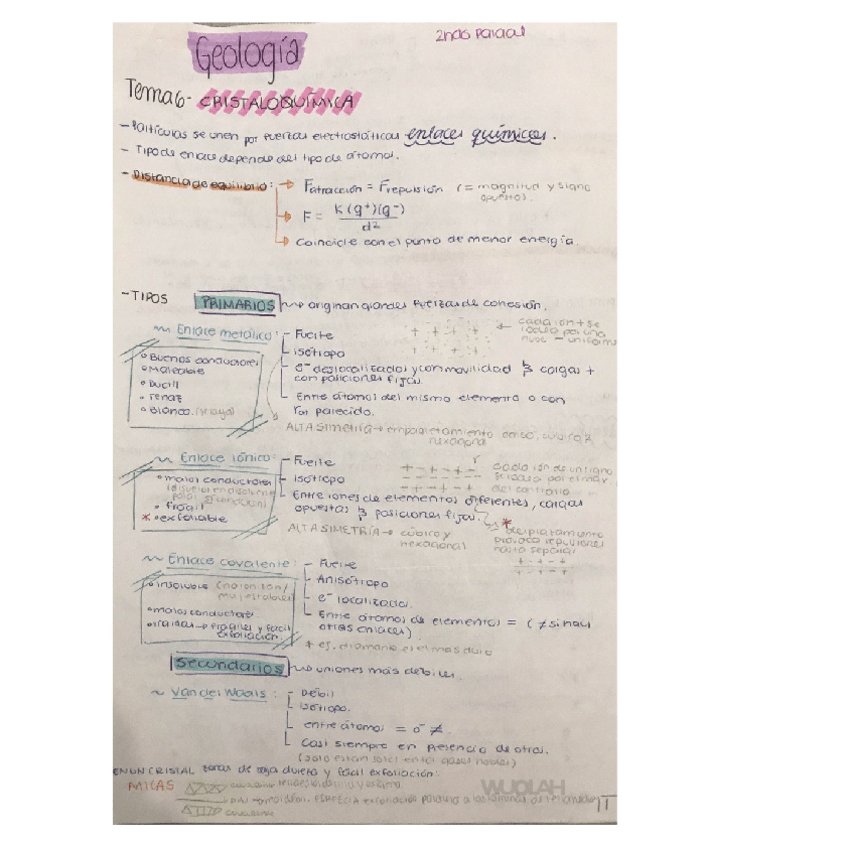 2ndo Parcial
Geología
Tema 6- CRISTALOQUÍMICA
- Partículas se unen por fuerzas electrostáticas enlaces químicos.
- Tipo de enlace depende del tipo de átomo.
- Distancia de equilibrio: → Fatracción = Frepulsión (= magnitud y signo
opuestos).
→ F = K(q+)(q-)
d²
→ Coincide con el punto de menor energía.
- TIPOS PRIMARIOS ~> originan grandes fuerzas de cohesión.
~ Enlace metálico: - Fuerte
- Isótropo
cada ion + se
rodea por una
nube - uniforme
- e- deslocalizados y con movilidad y cargas +
con posiciones fijas.
- Entre átomos del mismo elemento o con
r parecido.
• Buenos conductores
• Maleable
• Ductil
• Tenaz
• Blando.
ALTA SIMETRÍA → empaquetamiento denso, cúbico y
hexagonal
~ Enlace iónico: - Fuerte
- Isótropo
- Entre iones de elementos diferentes, cargas
opuestas y posiciones fijas.
cada ion de un signo
rodeado por el max
del contrario
• malos conductores
• frágil
* • exfoliable
ALTA SIMETRÍA → cúbico y
hexagonal
* desplazamiento
provoca repulsiones
hasta separar
+ - + -
~ Enlace covalente: - Fuerte
- Anisótropo
- e- localizados.
- Entre átomos de elementos = (≠ si hay
otros enlaces)
• insoluble (no ion
muy estables)
• malos conductores
frágiles y fácil
exfoliación.
* ej. diamante es el más duro
Secundarios ~> uniones más débiles.
~ Van der Waals: - Débil
- Isótropo.
- entre átomos = o ≠.
- Casi siempre en presencia de otros.
(solo están solos en los gases nobles)
EN UN CRISTAL zonas de baja dureza y fácil exfoliación:
MICAS
WUOLAH